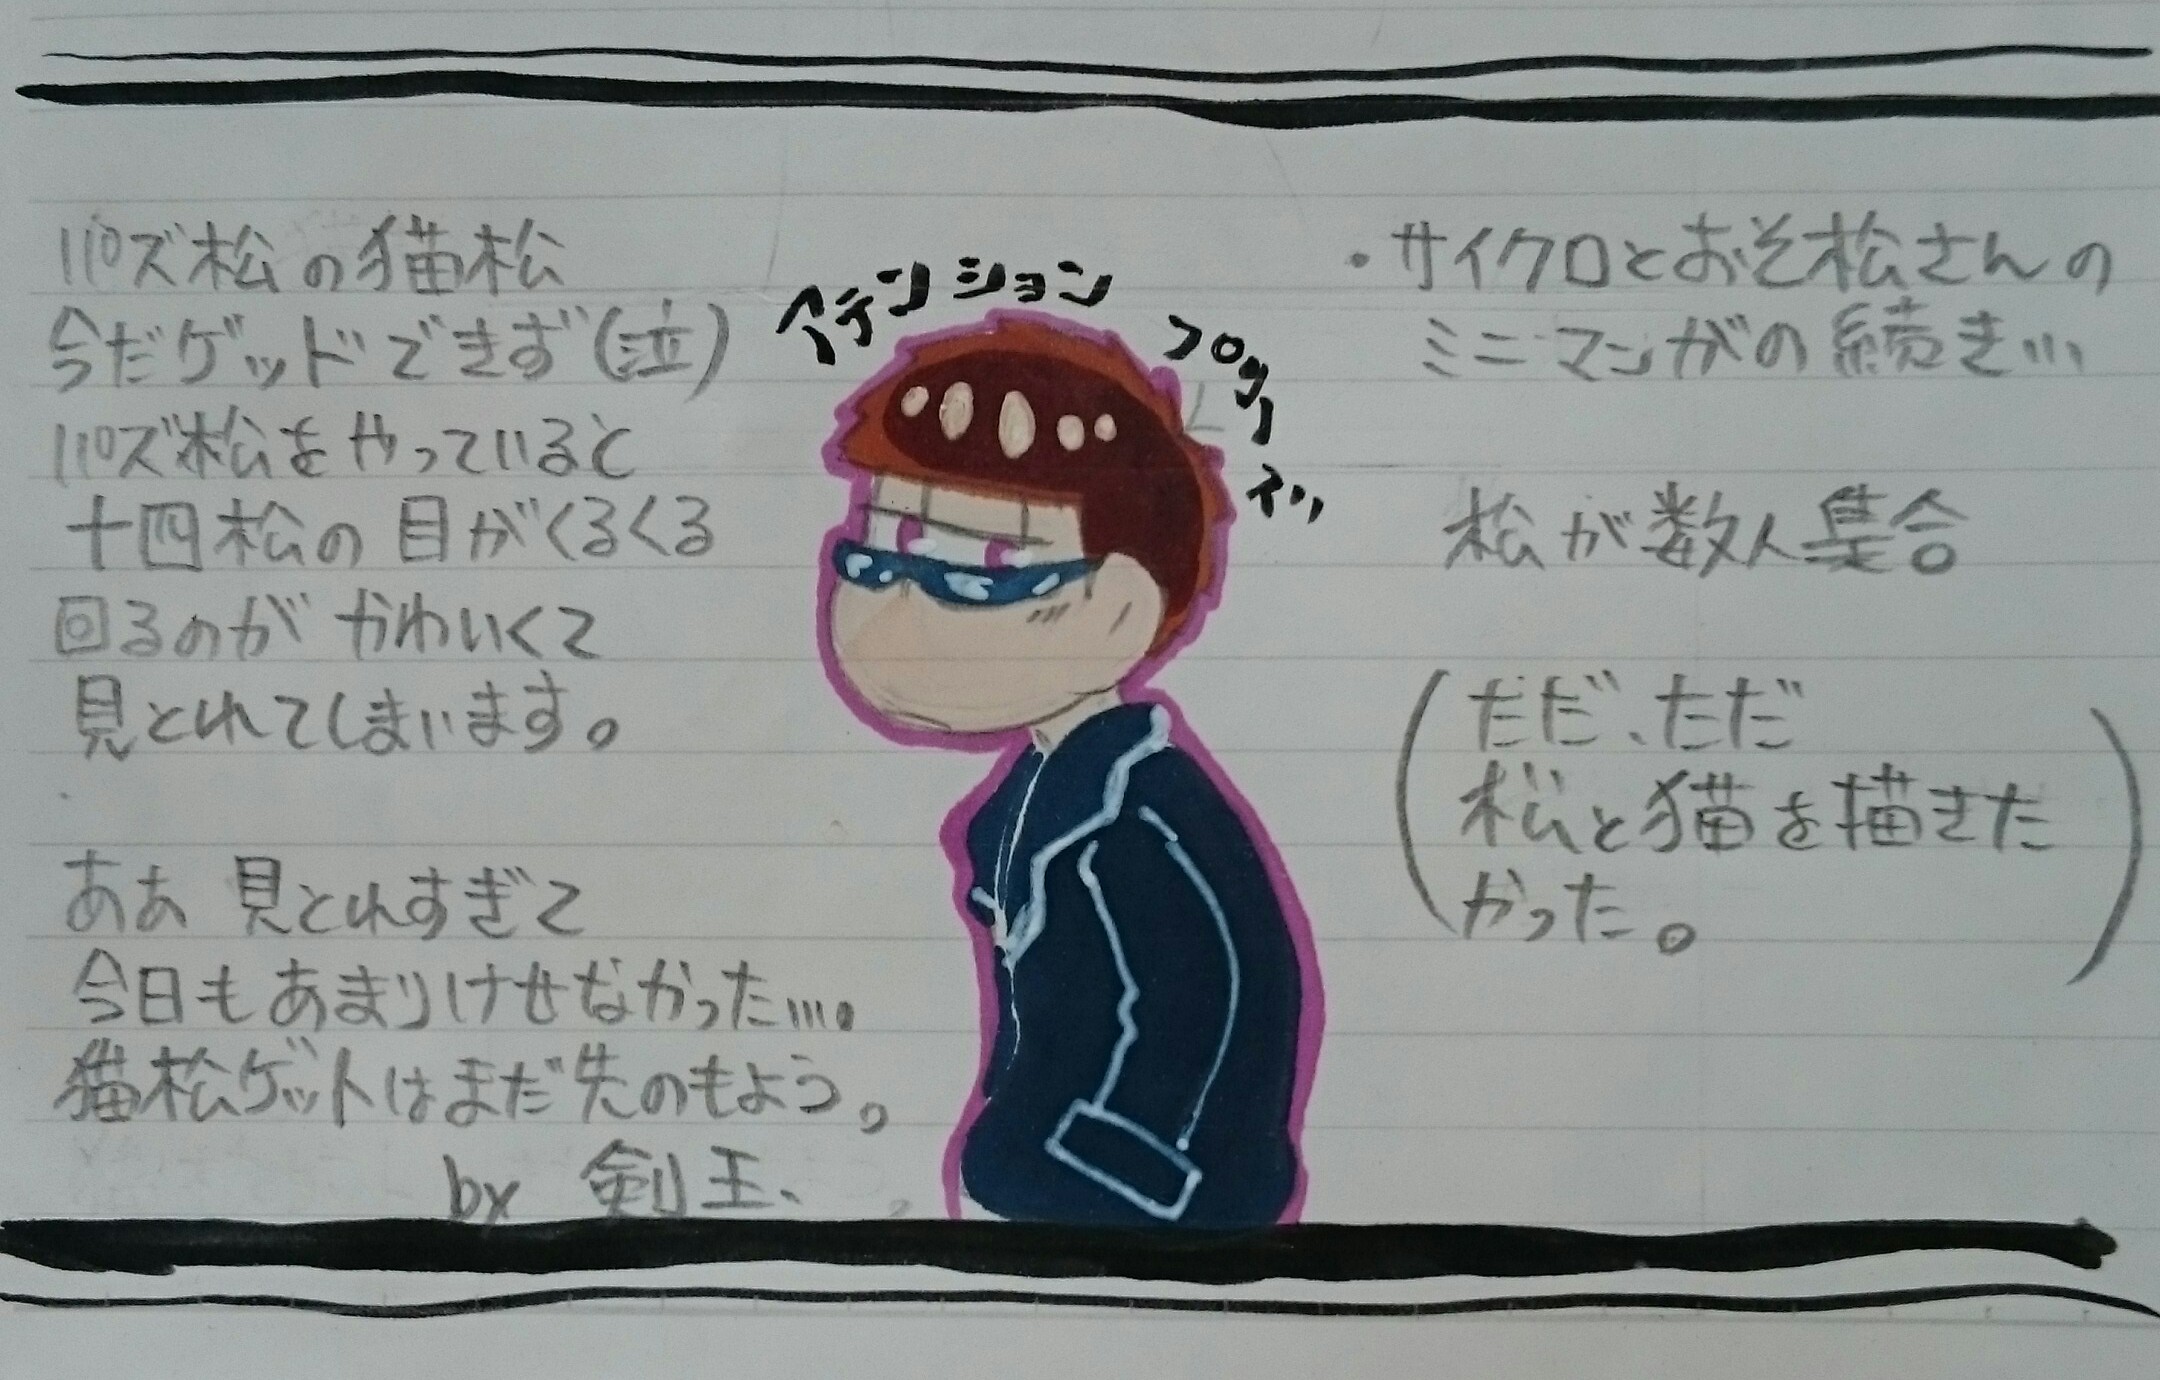 パズ松の猫松
今だゲッドできず(泣)
パズ松をやっていると
十四松の目がくるくる
回るのがかわいくて
見とれてしまいます。
ああ 見とれすぎて
今日もあまりけせなかった…。
猫松ゲットはまだ先のもよう。
by 剣王、
アテンション
フロッ
・サイクロとおそ松さんの
ミニマンガの続き…
松が数人集合
(ただ、ただ
松と猫を描きた
かった。)